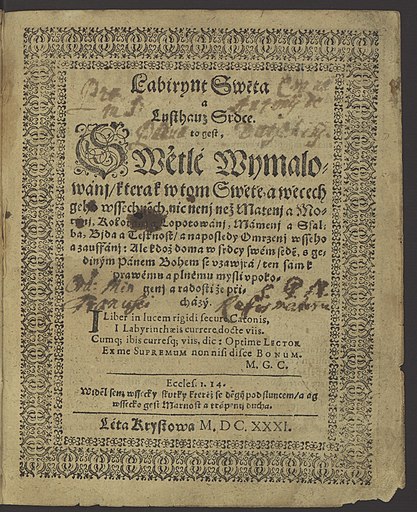 Labirynt Swěta
a
Lusthauz Srdce.
to gest,
SWětlé Wymalo-
wánj/ kterak w tom Swětě a wěcech
geho wssechněch, nic nenj než Matenj a Mo-
tánj, Kolotánj a Lopotowánj, Mámenj a Ssal-
ba, Bjda a Tesknost/ a naposledy Omrzenj wsseho
a zauffánj: Ale kdož doma w srdcy swém sedě, s ge-
diným Pánem Bohem se vzawjrá/ ten sám k
prawému a plnému mysli vpoko-
genj a radosti že při-
cházý.
I Liber in lucem rigidi secure Catonis,
I Labyrinthæis currere, docte viis.
Cumq; ibis curresq; viis, dic: Optime LECTOR
Ex me SUPREMUM non nisi disce BONUM.
M. G. C.
Eccles. 1. 14.
Widěl sem wssecky skutky kteréž se děgij pod sluncem/ a ag
wssecko gest Marnost a trápenj ducha.
Léta Krystowa M. DC. XXXI.